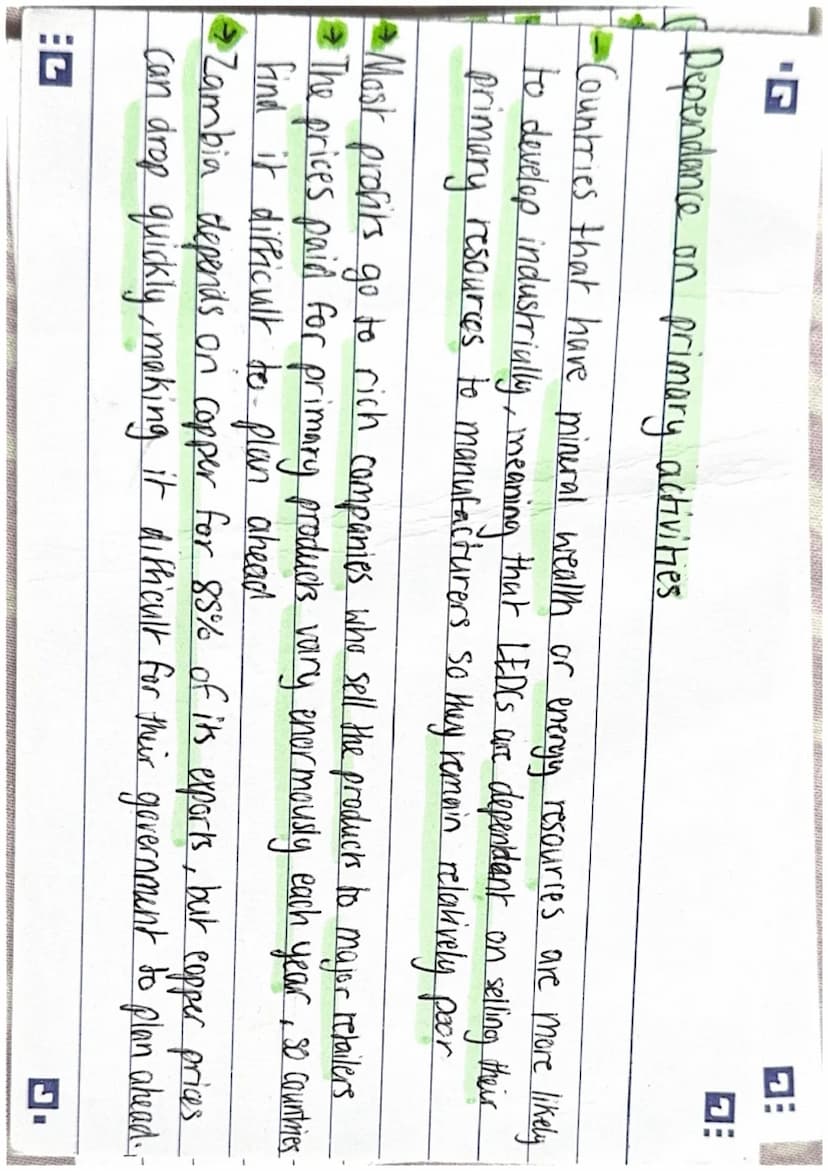 Dependance on primary activities
- Countries that have mineral wealth or energy resources are more likely
to develop industrially, meaning that LEDCs are dependant on selling their
primary resources to manufacturers so they remain relatively poor
→ Most profits go to rich companies who sell the products to major retailers
→ The prices paid for primary products vary enormously each year, so countries
find it difficult to plan ahead
→ Zambia depends on copper for 85% of its exports, but copper prices
can drop quickly, making it difficult for their government to plan ahead.